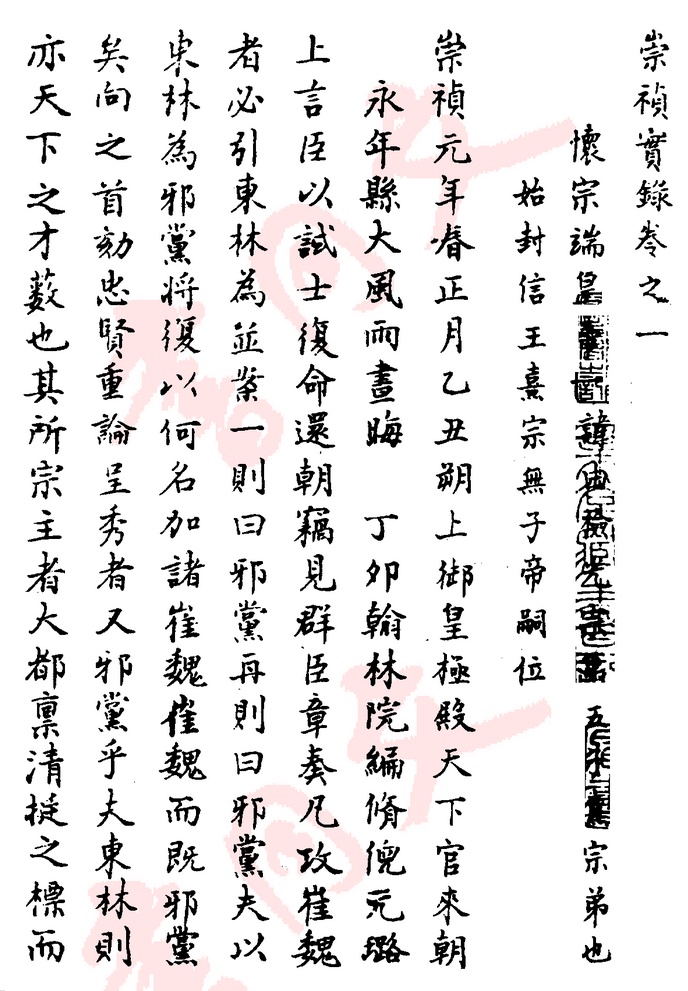 崇禎實錄卷之一
懷宗端皇 諱由檢光 五 宗弟也
始封信王熹宗無子帝嗣位
崇禎元年春正月乙丑朔上御皇極殿天下官來朝
永年縣大風雨晝晦　丁卯翰林院編脩倪元璐
上言臣以試士復命還朝竊見群臣章奏凡攻崔魏
者必引東林為並案一則曰邪黨再則曰邪黨夫以
東林為邪黨將復以何名加諸崔魏崔魏而既邪黨
矣向之首劾忠賢重論呈秀者又邪黨乎夫東林則
亦天下之才藪也其所宗主者大都稟清挺之標而